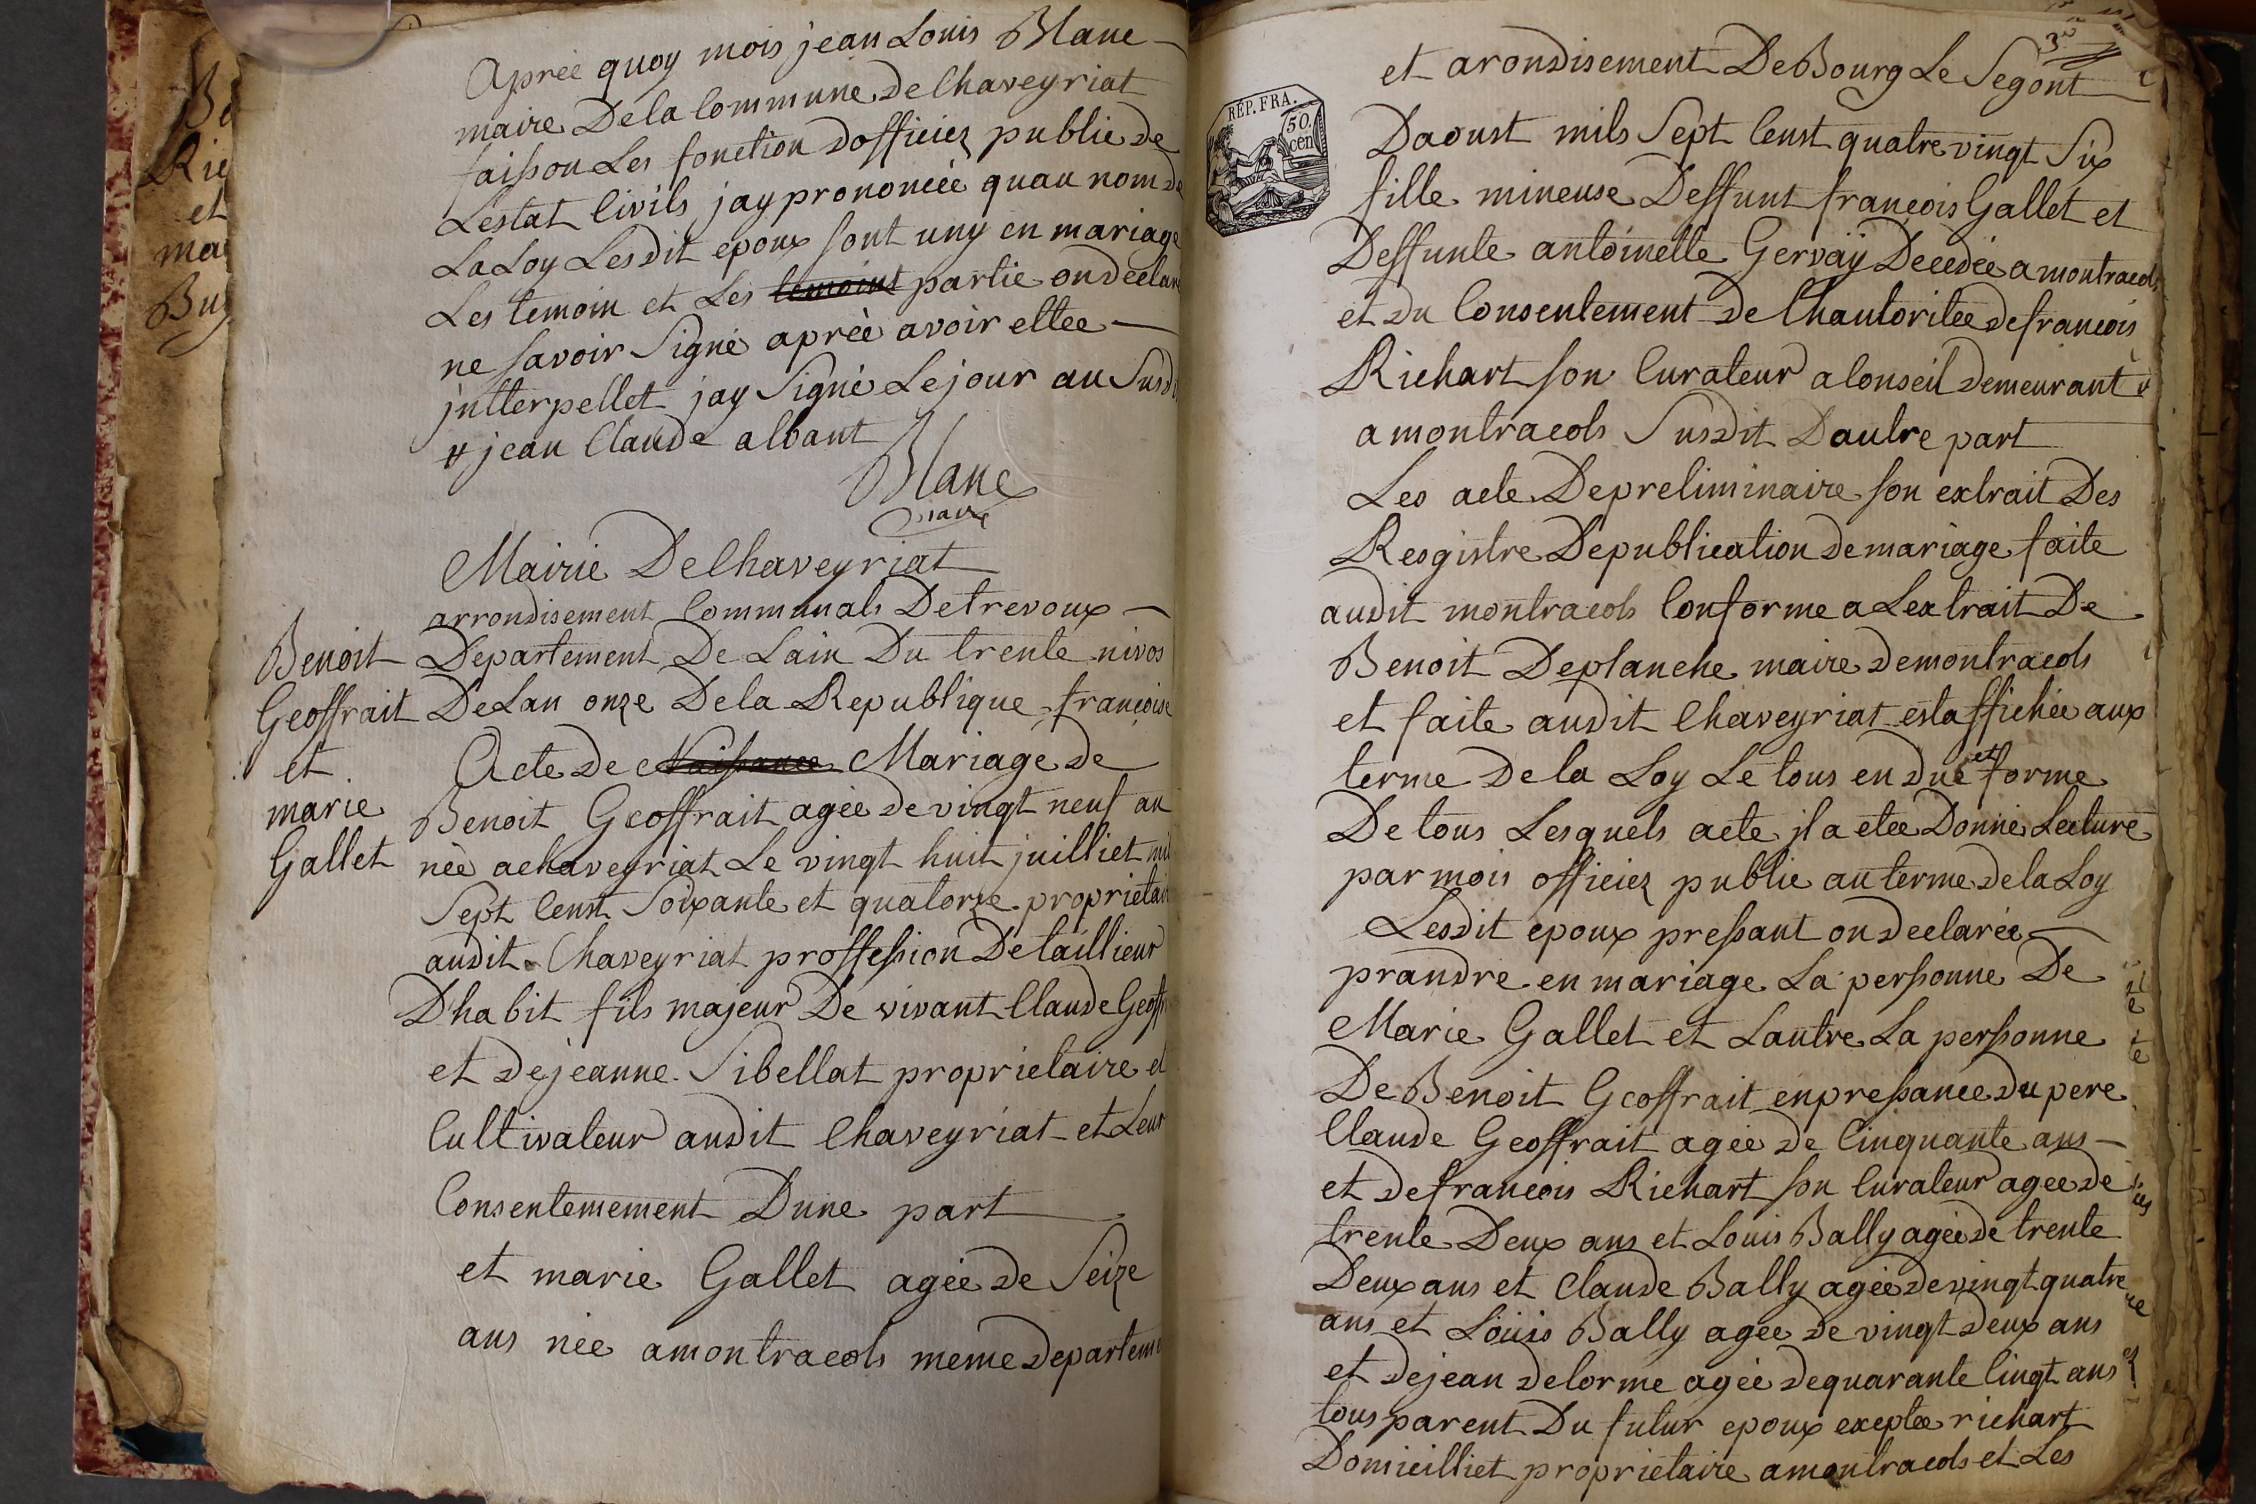 Aprèe quoy mois jean Louis Blanc
maire De la Commune de Chaveyriat
faisson Les fonction Dofficiez public de
Lestat Civils jay prononcèè quau nom de
La Loy Lesdit epoux sont uny en mariage
Les temoin et Les temoint partie on declare
ne savoir Signé aprèe avoir ettee
jntterpellet jay Signé Le jour au Susdi
# jean Claude albant
Blanc
maire
Mairie De Chaveyriat
arrondisement Communals De trevoux
Departement De Lain Du trente nivos
De Lan onze De la Republique françoise
Benoit
Geoffrait
et
marie
Gallet
Acte de Naissance Mariage de
Benoit Geoffrait agèe de vingt neuf an
nèe a chaveyriat Le vingt huit juilliet mil
Sept Censt Soixante et quatorze proprietair
audit Chaveyriat proffession De taillieur
D'habit fils majeur De vivant Claude Geoff
et de jeanne Sibellat proprietaire et
Cultivateur audit Chaveyriat et Leur
Consentemement Dune part
et marie Gallet agèe de Seize
ans nèe a montracols meme departeme
REP. FRA.
50
cen
et arondisement De Bourg Le Segont
Daoust mils Sept Censt quatre vingt Six
fille mineuse Deffunt françois Gallet et
Deffunte antoinette Gervaÿ Decedèe a montracols
et du Consentement de Lhautoritèe de françois
Richart son Curateur a Conseil demeurant
a montracols Susdit Dautre part
Les acte De preliminaire son extrait Des
Resgistre De publication de mariage faite
audit montracols Conforme a Lextrait De
Benoit Deplanche maire de montracols
et faite audit Chaveyriat est affichèe aux
terme De la Loy Le tous en due et forme
De tous Lesquels acte jl a etèe Donné Lecture
par mois officiez public au terme de la Loy
Lesdit epoux pressant on declarèe
prandre en mariage La personne De
Marie Gallet et Lautre La personne
De Benoit Geoffrait en pressance du pere
Claude Geoffrait agèe de Cinquante ans
et de françois Richart son Curateur agèe de
trente Deux ans et Louis Bally agèe de trente
Deux ans et Claude Bally agèe de vingt quatre
ans et Louis Bally agèe de vingt deux ans
et de jean delorme agèe de quarante Cingt ans
tous parent Du futur epoux exeptèe richart
Domicilliet proprietaire a montracols et Les